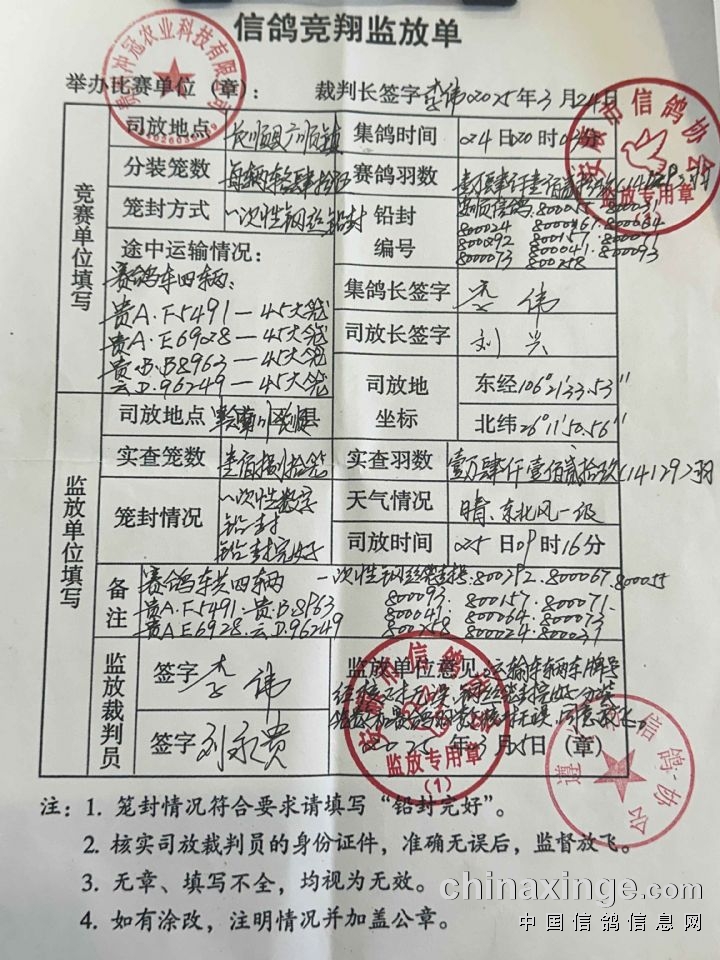 信鸽竞翔监放单
举办比赛单位（章）： 裁判长签字 李伟 2025年3月24日
冲冠农业科技有限公司
市信鸽协会
监放专用章
(1)
竞赛单位填写
司放地点 长顺县广顺镇 集鸽时间 24日20时
分装笼数 每辆车 赛鸽羽数 壹万肆仟壹佰贰拾玖
笼封方式 一次性钢丝铅封 铅封编号 信鸽
800024 800064
800073 800258 800041 800093
途中运输情况：
赛鸽车四辆：
贵A·F5491—45大笼
贵A·E6928—45大笼
贵B·B8963—45大笼
云D·96249—45大笼
集鸽长签字 李伟
司放长签字 刘兴
司放地坐标 东经106°21′33.53″
北纬26°11′50.56″
监放单位填写
司放地点
实查笼数 壹佰捌拾笼 实查羽数 壹万肆仟壹佰贰拾玖(14129)羽
笼封情况 一次性数字
铅封
铅封完好
天气情况 晴、东北风一级
司放时间 25日09时16分
备注 赛鸽车共四辆 一次性钢丝 800292·800067·800055
贵A·F5491·贵·B8963 800093·800157·800071·
贵A E6928·云D·96249 800041·800064·800073
800258·800024·800039
监放裁判员 签字 李伟
签字 刘永贵
监放单位意见：运输车辆车牌号
2025年3月25日（章）
市信鸽协会
监放专用章
(1)
遵 信鸽协会
注：1. 笼封情况符合要求请填写“铅封完好”。
2. 核实司放裁判员的身份证件，准确无误后，监督放飞。
3. 无章、填写不全，均视为无效。
4. 如有涂改，注明情况并加盖公章。
chinaxinge.com
中国信鸽信息网